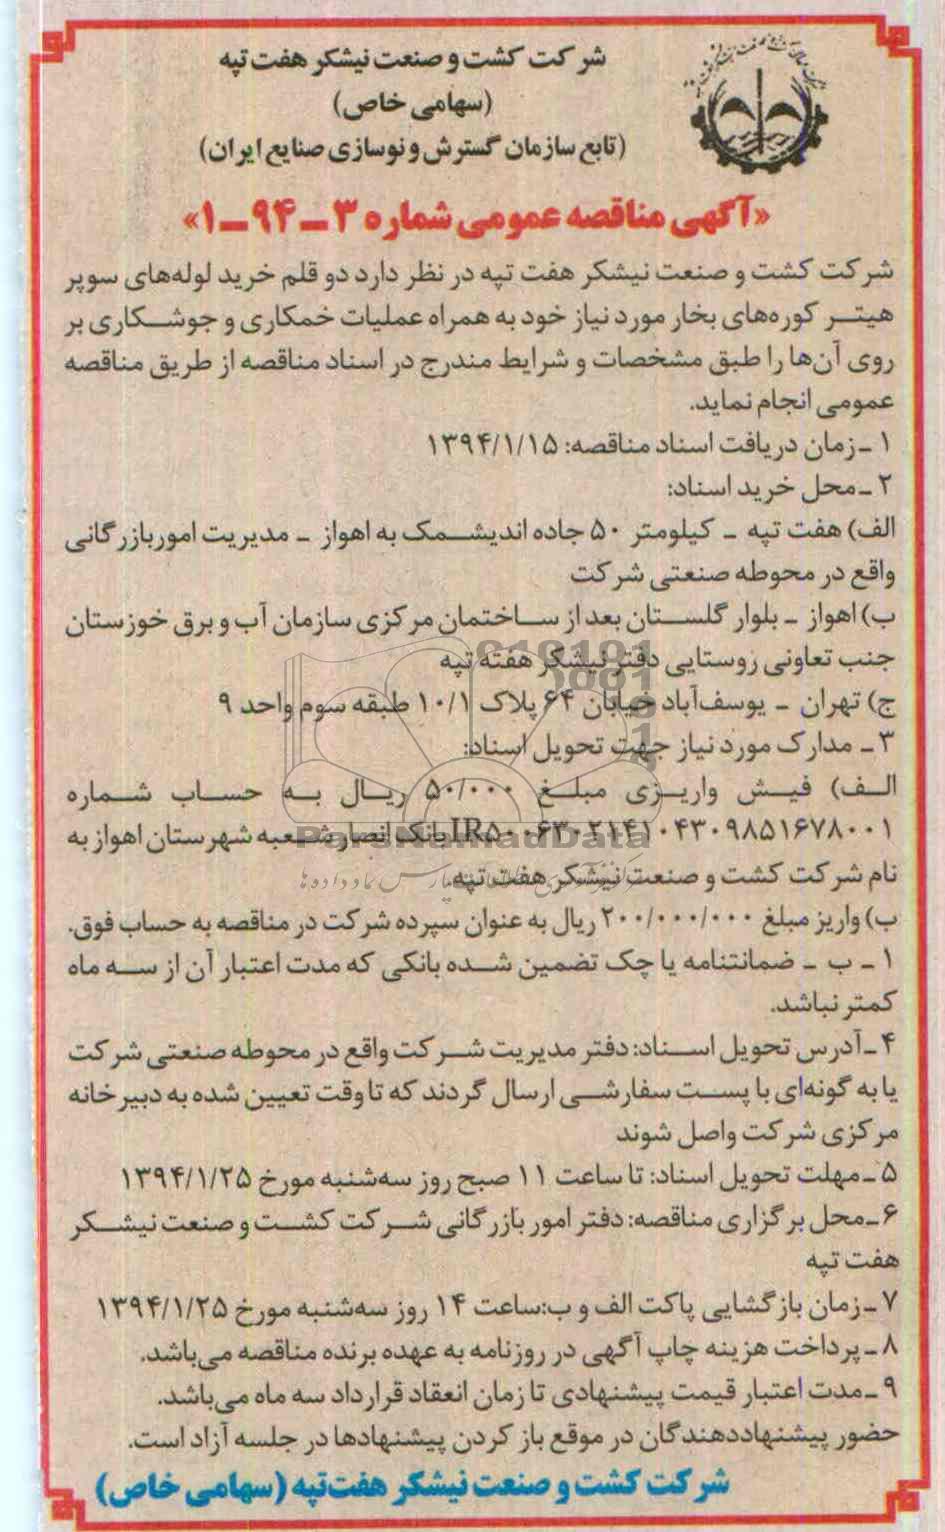 شرکت کشت و صنعت نیشکر هفت تپه
(سهامی خاص)
(تابع سازمان گسترش و نوسازی صنایع ایران)
«آگهی مناقصه عمومی شماره ۳ ـ ۹۴ ـ ۱»
شرکت کشت و صنعت نیشکر هفت تپه در نظر دارد دو قلم خرید لوله‌های سوپر
هیتر کوره‌های بخار مورد نیاز خود به همراه عملیات خمکاری و جوشکاری بر
روی آن‌ها را طبق مشخصات و شرایط مندرج در اسناد مناقصه از طریق مناقصه
عمومی انجام نماید.
۱ ـ زمان دریافت اسناد مناقصه: ۱۳۹۴/۱/۱۵
۲ ـ محل خرید اسناد:
الف) هفت تپه ـ کیلومتر ۵۰ جاده اندیشمک به اهواز ـ مدیریت امور بازرگانی
واقع در محوطه صنعتی شرکت
ب) اهواز ـ بلوار گلستان بعد از ساختمان مرکزی سازمان آب و برق خوزستان
جنب تعاونی روستایی دفتر نیشکر هفته تپه
ج) تهران ـ یوسف‌آباد خیابان ۶۴ پلاک ۱۰/۱ طبقه سوم واحد ۹
۳ ـ مدارک مورد نیاز جهت تحویل اسناد:
الف) فیش واریزی مبلغ ۵۰/۰۰۰ ریال به حساب شماره
IR۵۰۰۶۳۰۲۱۴۱۰۴۳۰۹۸۵۱۶۷۸۰۰۱ بانک انصار شعبه شهرستان اهواز به
نام شرکت کشت و صنعت نیشکر هفت تپه
ParsNamadData
ب) واریز مبلغ ۲۰۰/۰۰۰/۰۰۰ ریال به عنوان سپرده شرکت در مناقصه به حساب فوق.
۱ ـ ب ـ ضمانتنامه یا چک تضمین شده بانکی که مدت اعتبار آن از سه ماه
کمتر نباشد.
۴ ـ آدرس تحویل اسناد: دفتر مدیریت شرکت واقع در محوطه صنعتی شرکت
یا به گونه‌ای با پست سفارشی ارسال گردند که تا وقت تعیین شده به دبیرخانه
مرکزی شرکت واصل شوند
۵ ـ مهلت تحویل اسناد: تا ساعت ۱۱ صبح روز سه‌شنبه مورخ ۱۳۹۴/۱/۲۵
۶ ـ محل برگزاری مناقصه: دفتر امور بازرگانی شرکت کشت و صنعت نیشکر
هفت تپه
۷ ـ زمان بازگشایی پاکت الف و ب: ساعت ۱۴ روز سه‌شنبه مورخ ۱۳۹۴/۱/۲۵
۸ ـ پرداخت هزینه چاپ آگهی در روزنامه به عهده برنده مناقصه می‌باشد.
۹ ـ مدت اعتبار قیمت پیشنهادی تا زمان انعقاد قرارداد سه ماه می‌باشد.
حضور پیشنهاددهندگان در موقع باز کردن پیشنهادها در جلسه آزاد است.
شرکت کشت و صنعت نیشکر هفت‌تپه (سهامی خاص)